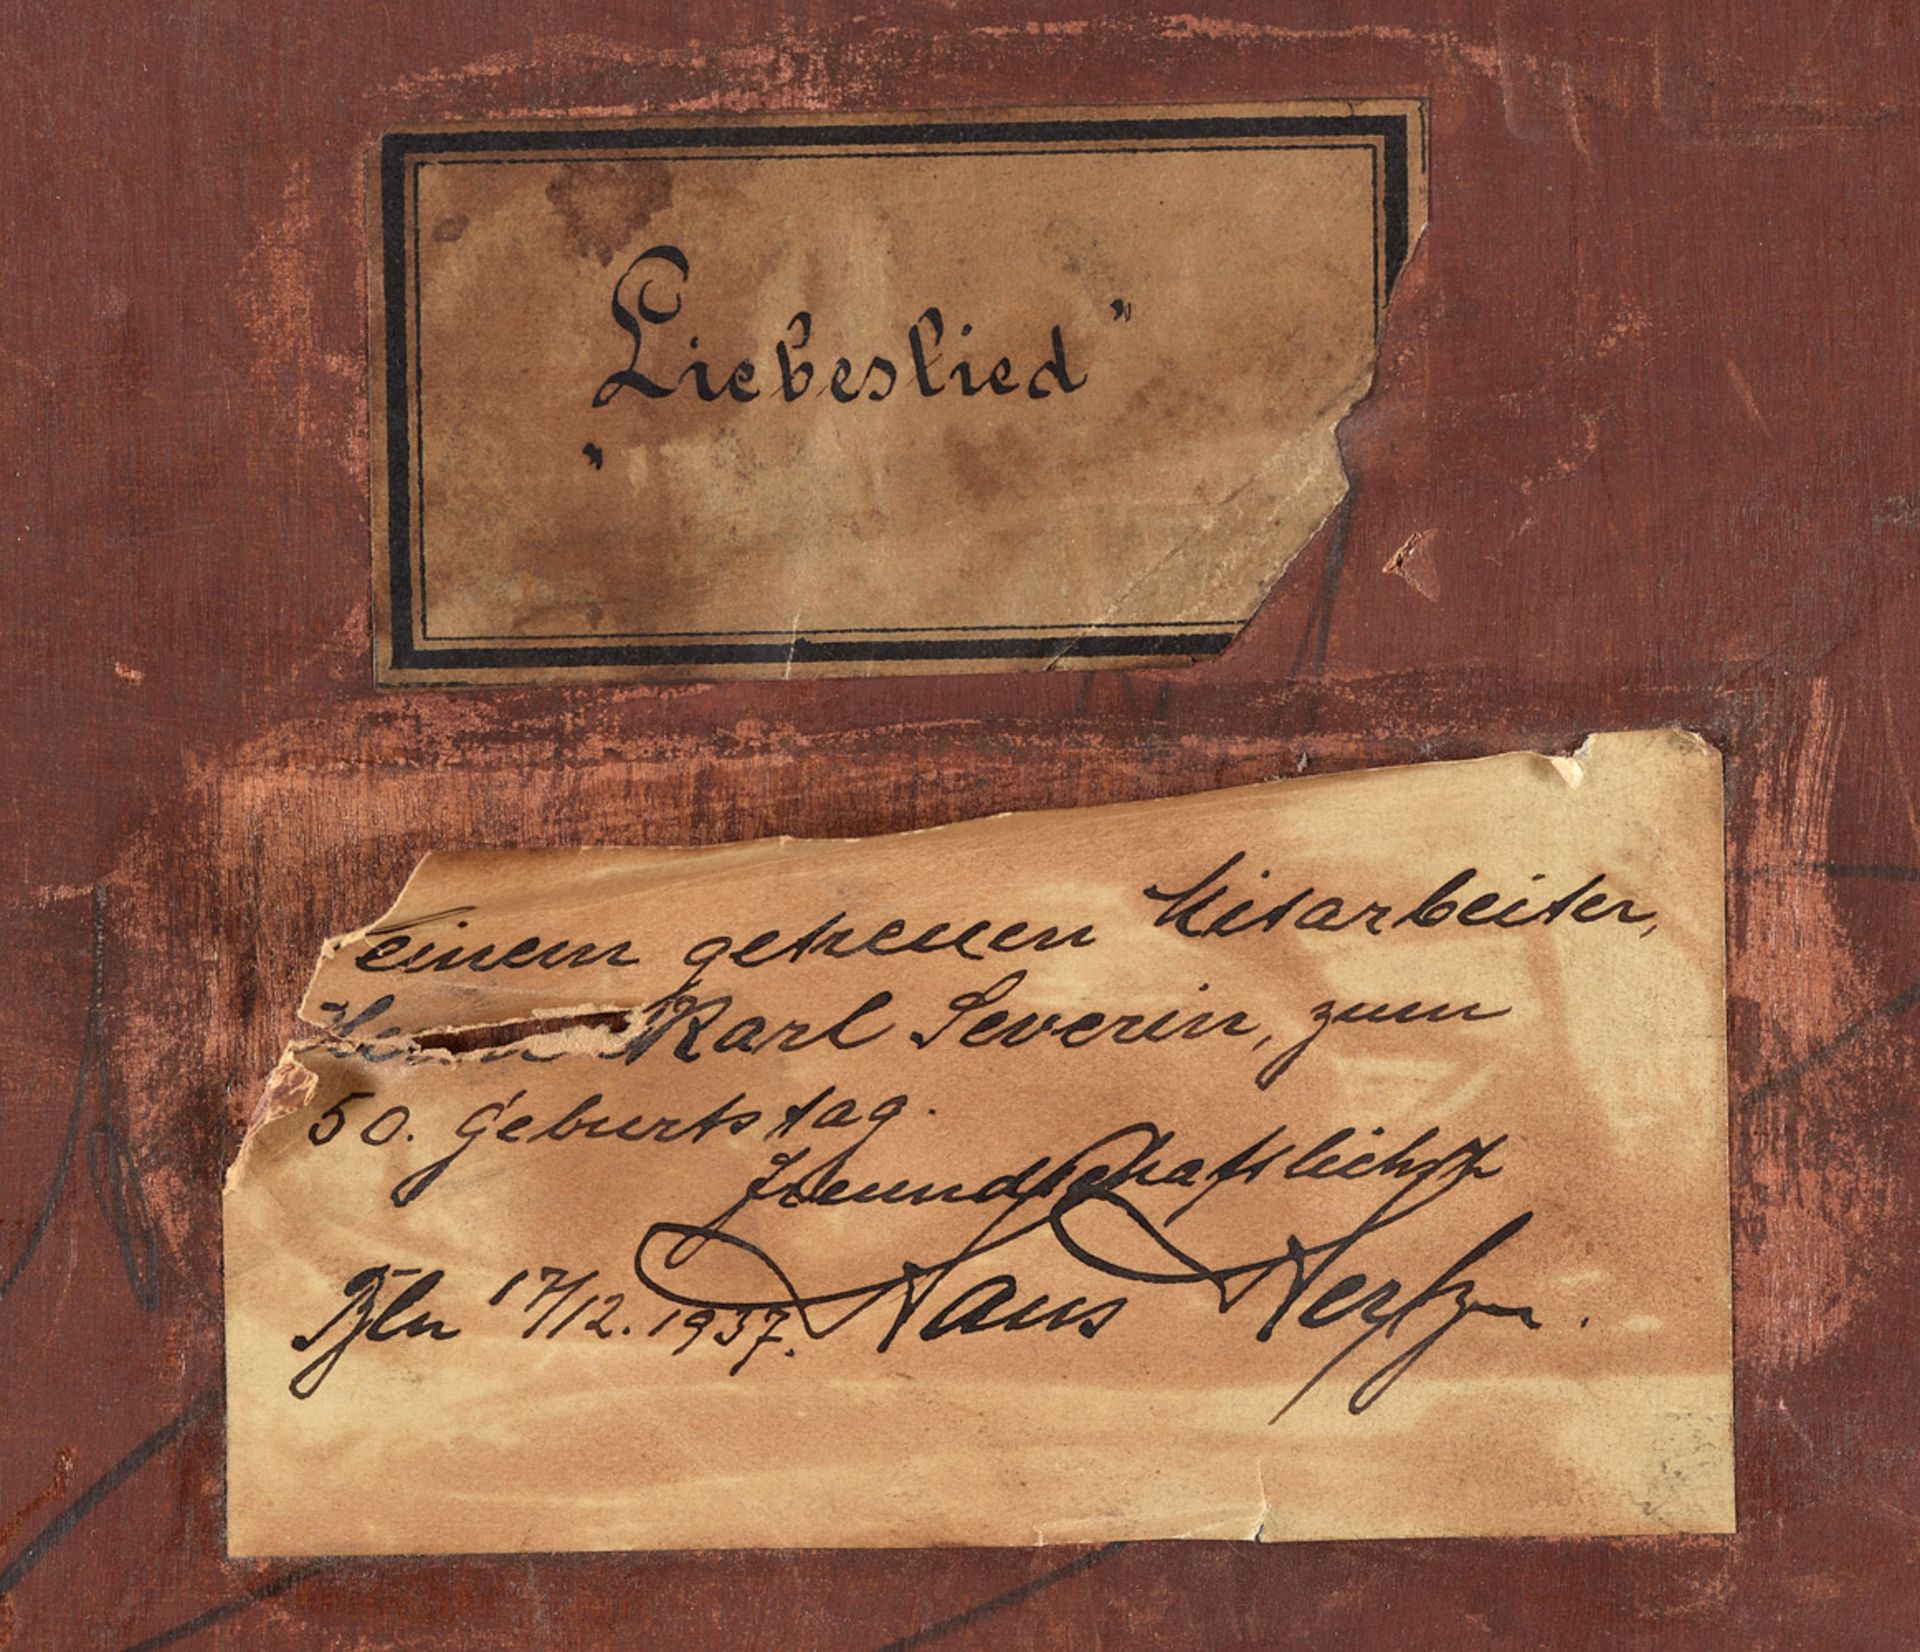 „Liebeslied”
einem getreuen Mitarbeiter,
Herrn Karl Severin, zum
50. Geburtstag.
freundschaftlichst
Bln 17/12.1937. Hans